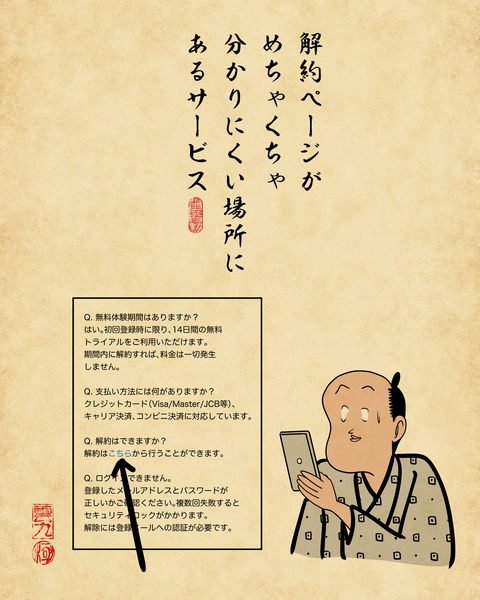 解約ページが
めちゃくちゃ
分かりにくい場所に
あるサービス
Q. 無料体験期間はありますか？
はい。初回登録時に限り、14日間の無料
トライアルをご利用いただけます。
期間内に解約すれば、料金は一切発生
しません。
Q. 支払い方法には何がありますか？
クレジットカード（Visa/Master/JCB等）、
キャリア決済、コンビニ決済に対応しています。
Q. 解約はできますか？
解約はこちらから行うことができます。
Q. ログインできません。
登録したメールアドレスとパスワードが
正しいかご確認ください。複数回失敗すると
セキュリティロックがかかります。
解除には登録メールへの認証が必要です。